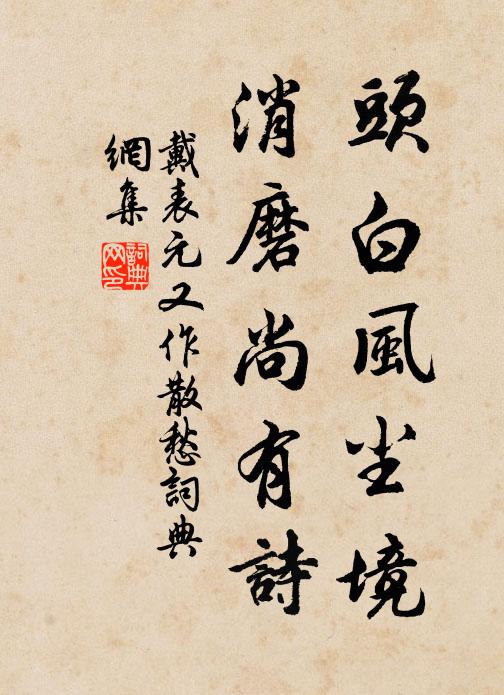 頭白風尘境
消磨尚有詩
戴表元又作散愁詞典
網集
詞典
网印